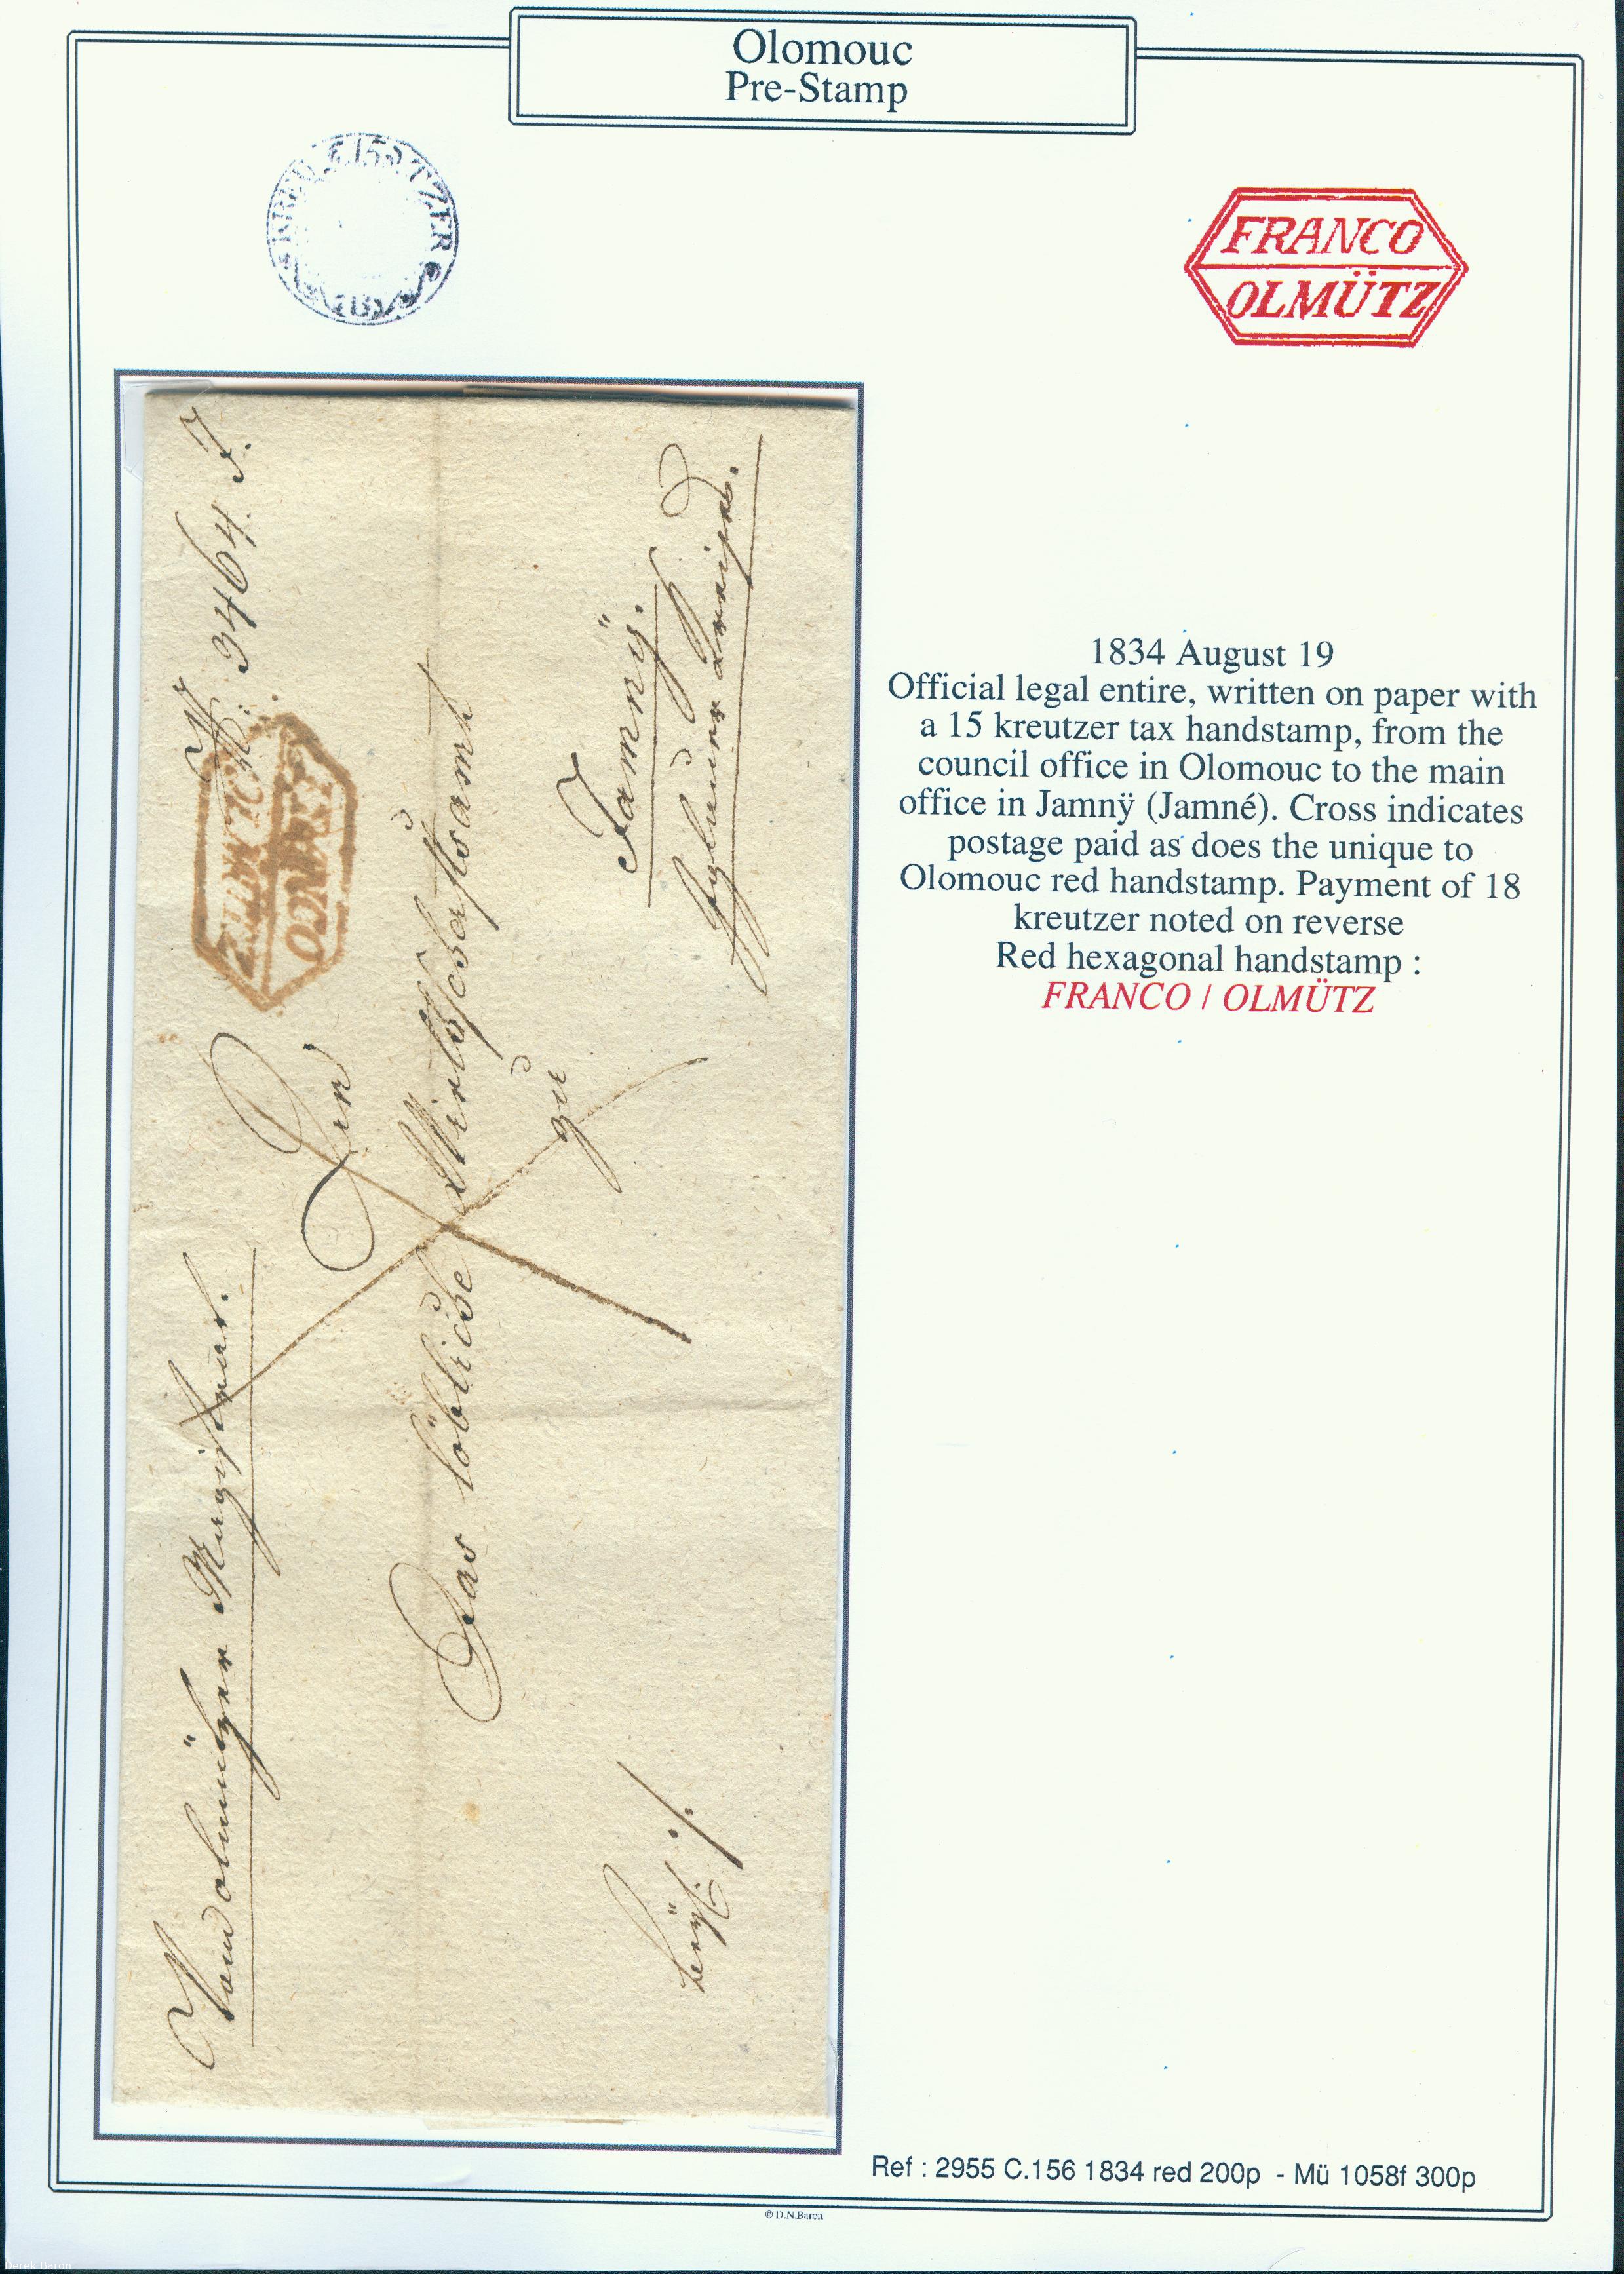 Olomouc
Pre-Stamp
KREU 15 TZER
FRANCO
OLMÜTZ
Vom olmützer Magistrat.
N: 3464. J.
OLMÜTZ
FRANCO
An
Das löbliche Wirthschaftsamt
zu
Jamnÿ.
Iglauer Kreises.
1834 August 19
Official legal entire, written on paper with
a 15 kreutzer tax handstamp, from the
council office in Olomouc to the main
office in Jamnÿ (Jamné). Cross indicates
postage paid as does the unique to
Olomouc red handstamp. Payment of 18
kreutzer noted on reverse
Red hexagonal handstamp :
FRANCO / OLMÜTZ
Ref : 2955 C.156 1834 red 200p - Mü 1058f 300p
© D.N.Baron
Derek Baron